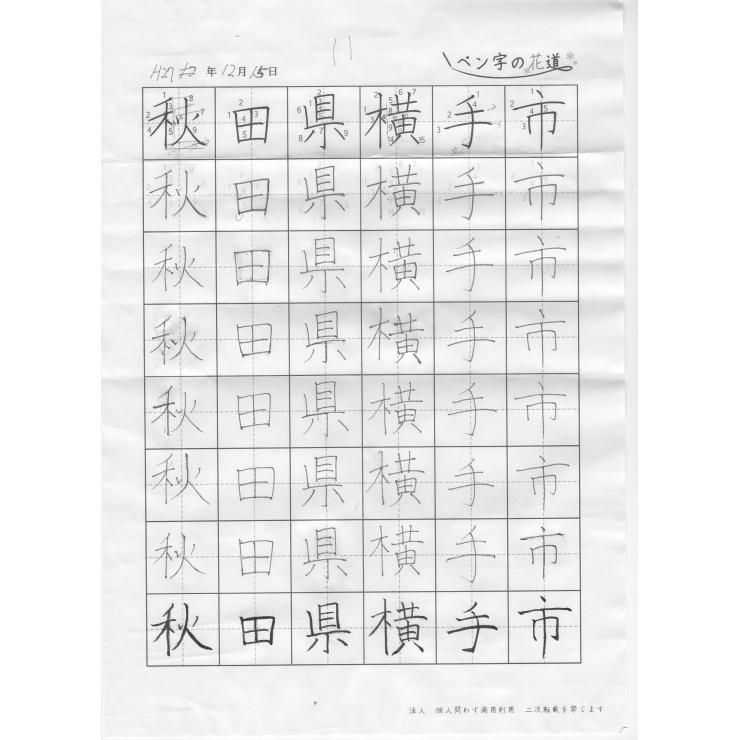 11
H27 年12月15日
ペン字の花道
秋田県横手市
秋田県横手市
秋田県横手市
秋田県横手市
秋田県横手市
秋田県横手市
秋田県横手市
秋田県横手市
法人 個人問わず商用利用 二次転載を禁じます